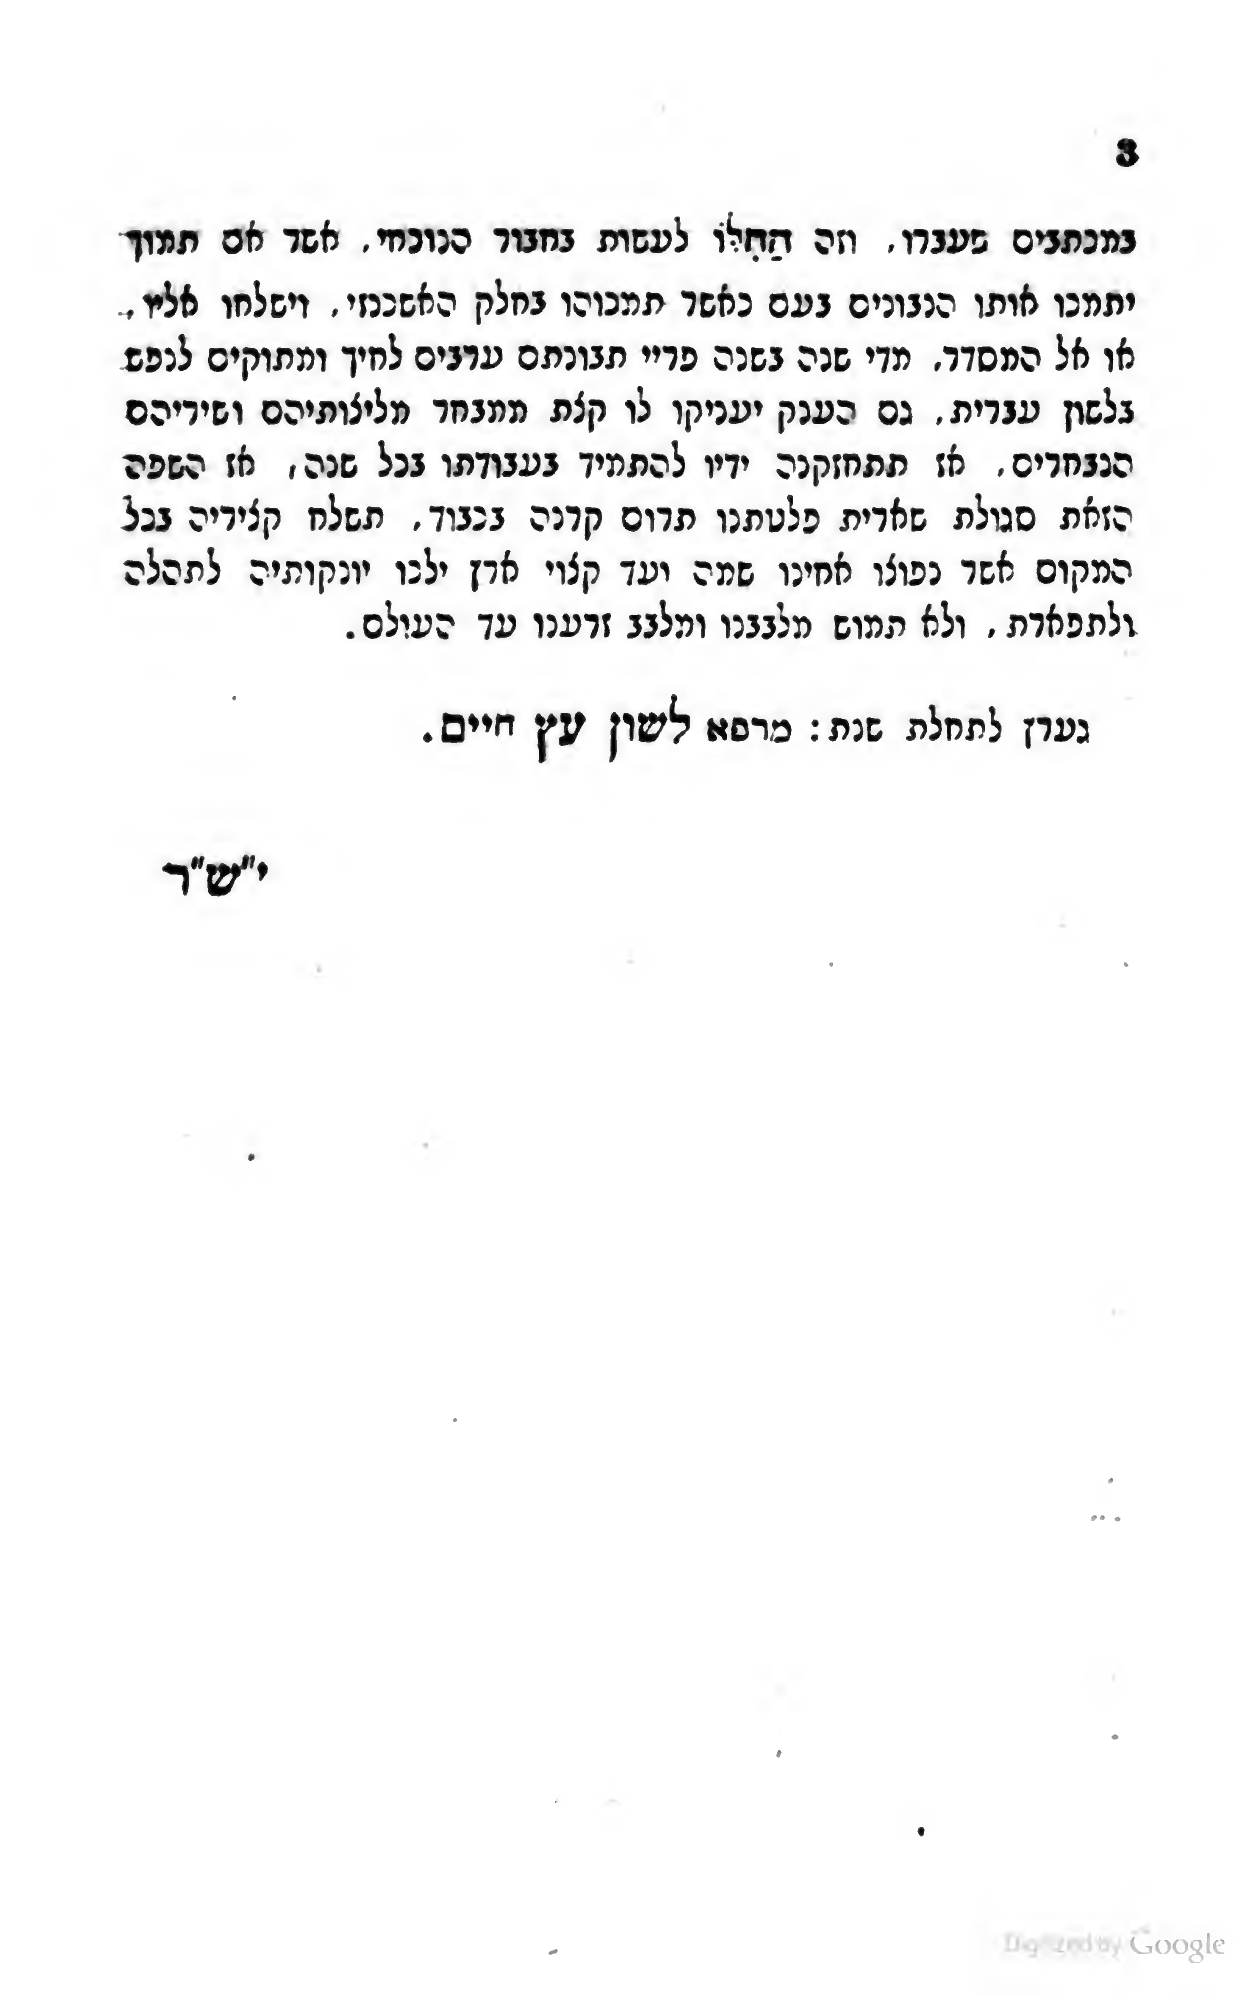 3
במכתבים שעברו, וזה הַחִלּוֹ לעשות בחבור הנוכחי, אשר אם תמוך
יתמכו אותו הנבונים בעם כאשר תמכוהו בחלק האשכנזי, וישלחו אליו,
או אל המסדר, מדי שנה בשנה פריי תבונתם ערבים לחיך ומתוקים לנפש
בלשון עברית, גם הענק יעניקו לו קצת ממבחר מליצותיהם ושיריהם
הנבחרים, אז תתחזקנה ידיו להתמיד בעבודתו בכל שנה, אז השפה
הזאת סגולת שארית פלטתנו תרום קרנה בכבוד, תשלח קציריה בכל
המקום אשר נפוצו אחינו שמה ועד קצוי ארץ ילכו יונקותיה לתהלה
ולתפארת, ולא תמוש מלבבנו ומלבב זרענו עד העולם.
גערץ לתחלת שנת: מרפא לשון עץ חיים.
י"ש"ר
Digitized by Google